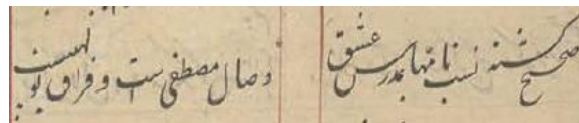 صحیح کشته نسب نامها بمدرس عشق
وصال مصطفی است و فراق بولهبست